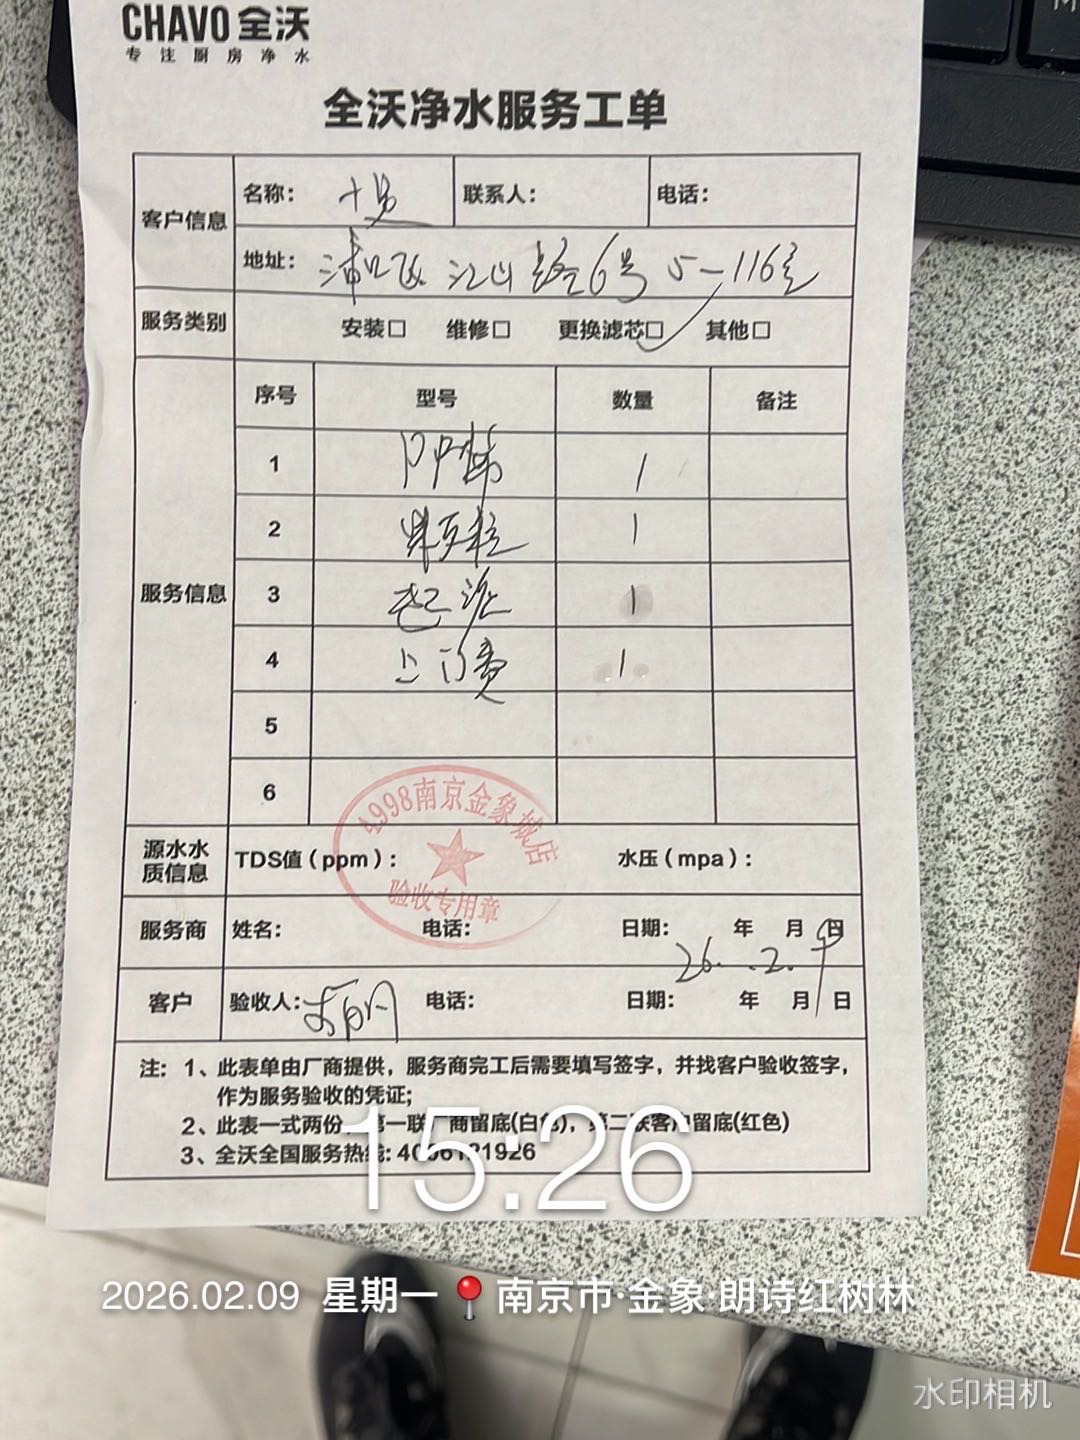 CHAVO 全沃
专注厨房净水
全沃净水服务工单
客户信息
名称： 联系人： 电话：
地址：浦口区江山路6号5-116室
服务类别 安装□ 维修□ 更换滤芯□ 其他□
服务信息
序号 型号 数量 备注
1 PP棉 1
2 果壳粒 1
3 1
4 上门费 1
5
6
4998南京金象城店
验收专用章
源水水质信息 TDS值（ppm）： 水压（mpa）：
服务商 姓名： 电话： 日期： 年 月 日
26.2.9
客户 验收人： 电话： 日期： 年 月 日
注：1、此表单由厂商提供，服务商完工后需要填写签字，并找客户验收签字，
作为服务验收的凭证；
2、此表一式两份，第一联厂商留底(白色)，第二联客户留底(红色)
3、全沃全国服务热线：4006121926
15:26
2026.02.09 星期一 南京市·金象·朗诗红树林
水印相机